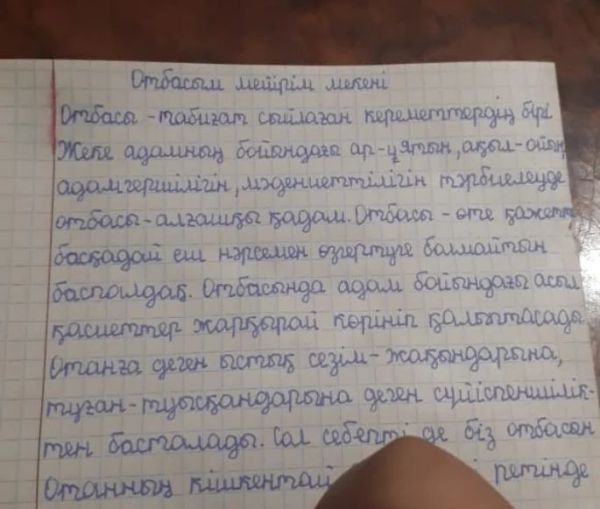 Отбасым мейірім мекені
Отбасы - табиғат сыйлаған кереметтердің бірі
Жеке адамның бойындағы ар-ұятын, ақыл-ойын,
адамгершілігін, мәдениеттілігін тәрбиелеуде
отбасы - алғашқы қадам. Отбасы - өте қажетті
басқадай еш нәрсемен өзгертуге болмайтын
баспалдақ. Отбасында адам бойындағы асыл
қасиеттер жарқырай көрініп қалыптасады
Отанға деген ыстық сезім - жақындарына,
туған-туысқандарына деген сүйіспеншілік-
тен басталады. Сол себепті де біз отбасын
Отанның кішкентай ретінде